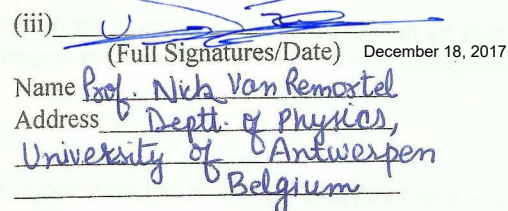 (iii)
(Full Signatures/Date) December 18, 2017
Name Prof. Nick Van Remostel
Address Deptt. of Physics,
University of Antwerpen
Belgium